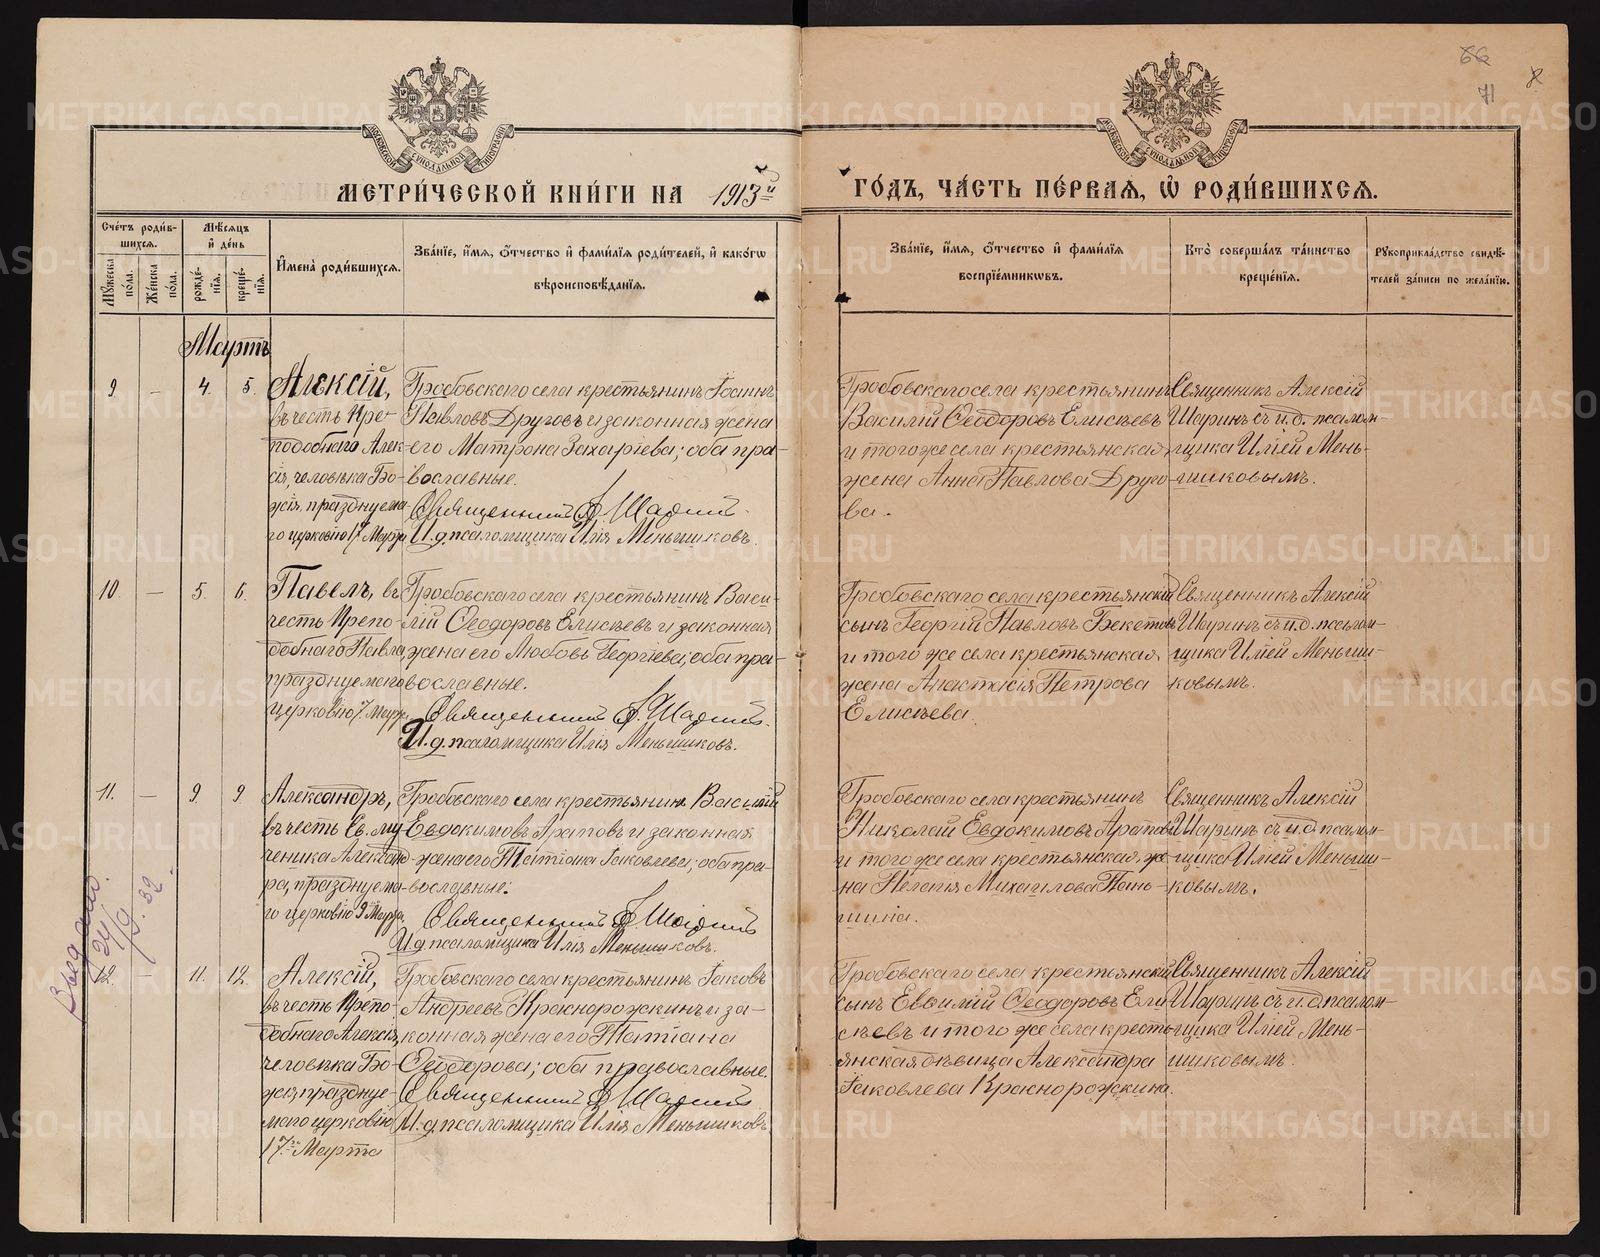 66
71
МОСКОВСКОЙ СѴНОДАЛЬНОЙ ТИПОГРАФІИ
МОСКОВСКОЙ СѴНОДАЛЬНОЙ ТИПОГРАФІИ
МЕТРИ́ЧЕСКОЙ КНИ́ГИ НА 1913й ГО́ДЪ, ЧА́СТЬ ПЕ́РВАѦ, Ѡ҆ РОДИ́ВШИХСѦ.
Сче́тъ роди́вшихсѧ.
Мꙋ́жеска по́ла.
Же́нска по́ла.
Мѣ́сѧцъ и҆ де́нь
рожде́нїѧ.
креще́нїѧ.
И҆мена̀ роди́вшихсѧ.
Зва́нїе, и҆́мѧ, ѻ҆́тчество и҆ фами́лїѧ роди́телей, и҆ како́гѡ
вѣроисповѣ́данїѧ.
Зва́нїе, и҆́мѧ, ѻ҆́тчество и҆ фами́лїѧ
воспрїе́мникѡвъ.
Кто̀ соверша́лъ та́инство
креще́нїѧ.
Рꙋкоприкла́дство свидѣ́телей за́писи по жела́нїю.
Мартъ
9 — 4. 5.
Алексій,
въ честь Пре-
подобнаго Алек-
сія, человѣка Бо-
жія, празднуема-
го церковію 17 Марта
Гробовскаго села крестьянинъ Іоаннъ
Павловъ Друговъ и законная жена
его Матрона Захаріева; оба пра-
вославные.
Священникъ А. Шаринъ.
И.д. псаломщика Илія Меньшиковъ.
Гробовскаго села крестьянинъ
Василій Ѳеодоровъ Елисѣевъ
и того же села крестьянская
жена Анна Павлова Друго-
ва.
Священникъ Алексій
Шаринъ съ и.д. псалом-
щика Иліей Мень-
шиковымъ.
10 — 5. 6.
Павелъ, въ
честь Препо-
добнаго Павла,
празднуемаго
церковію 7 Марта
Гробовскаго села крестьянинъ Васи-
лій Ѳеодоровъ Елисѣевъ и законная
жена его Любовь Георгіева; оба пра-
вославные.
Священникъ А. Шаринъ.
И.д. псаломщика Илія Меньшиковъ.
Гробовскаго села крестьянскій
сынъ Георгій Павловъ Бекетовъ
и того же села крестьянская
жена Анастасія Петрова
Елисѣева.
Священникъ Алексій
Шаринъ съ и.д. псалом-
щика Иліей Меньши-
ковымъ.
11. — 9. 9
Александръ,
въ честь Св. му-
ченика Александ-
ра, празднуема-
го церковію 9 Марта.
Гробовскаго села крестьянинъ Василій
Евдокимовъ Араповъ и законная
жена его Татіана Іаковлева; оба пра-
вославные.
Священникъ А. Шаринъ
И.д. псаломщика Илія Меньшиковъ.
Гробовскаго села крестьянинъ
Николай Евдокимовъ Араповъ
и того же села крестьянская же-
на Пелагія Михаилова Пань-
шина.
Священникъ Алексій
Шаринъ съ и.д. псалом-
щика Иліей Меньши-
ковымъ.
Выдано
24/9. 32.
12. — 11. 12.
Алексій,
въ честь Препо-
добнаго Алексія,
человѣка Бо-
жія, празднуе-
маго церковію
17го Марта
Гробовскаго села крестьянинъ Іаковъ
Андреевъ Краснорожкинъ и за-
конная жена его Татіана
Ѳеодорова; оба православные.
Священникъ А. Шаринъ
И.д. псаломщика Илія Меньшиковъ
Гробовскаго села крестьянскій
сынъ Евсилій Ѳеодоровъ Ели-
сѣевъ и того же села кресть-
янская дѣвица Александра
Іаковлева Краснорожкина.
Священникъ Алексій
Шаринъ съ и.д. псалом-
щика Иліей Мень-
шиковымъ.
METRIKI.GASO-URAL.RU